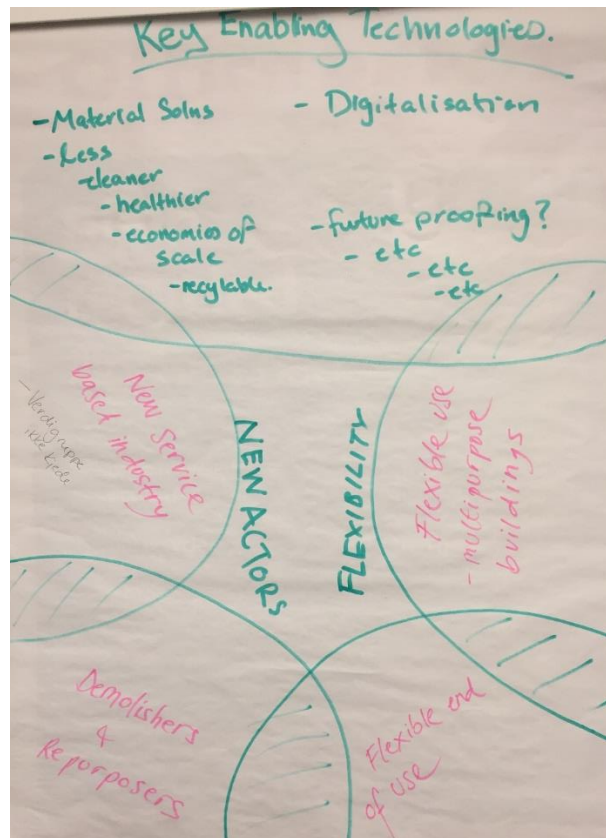 Key Enabling Technologies.
- Material Solns
- Less
- cleaner
- healthier
- economies of
scale
- recylable.
- Digitalisation
- future proofing?
- etc
- etc
- etc
New Service
based industry
- Verdigruppe
ikke kjede
NEW ACTORS
FLEXIBILITY
Flexible use
- multipurpose
buildings
Demolishers
&
Repurposers
Flexible end
of use